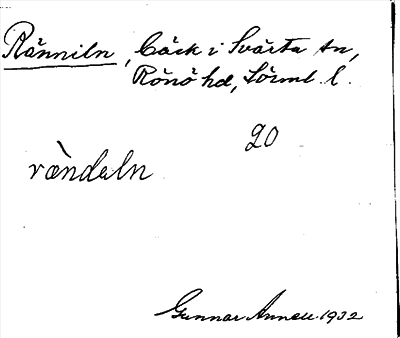 Ränniln, Bäck i Svärta sn,
Rönö hd, Sörml. l.
20
rændaln
Gunnar Annell 1932